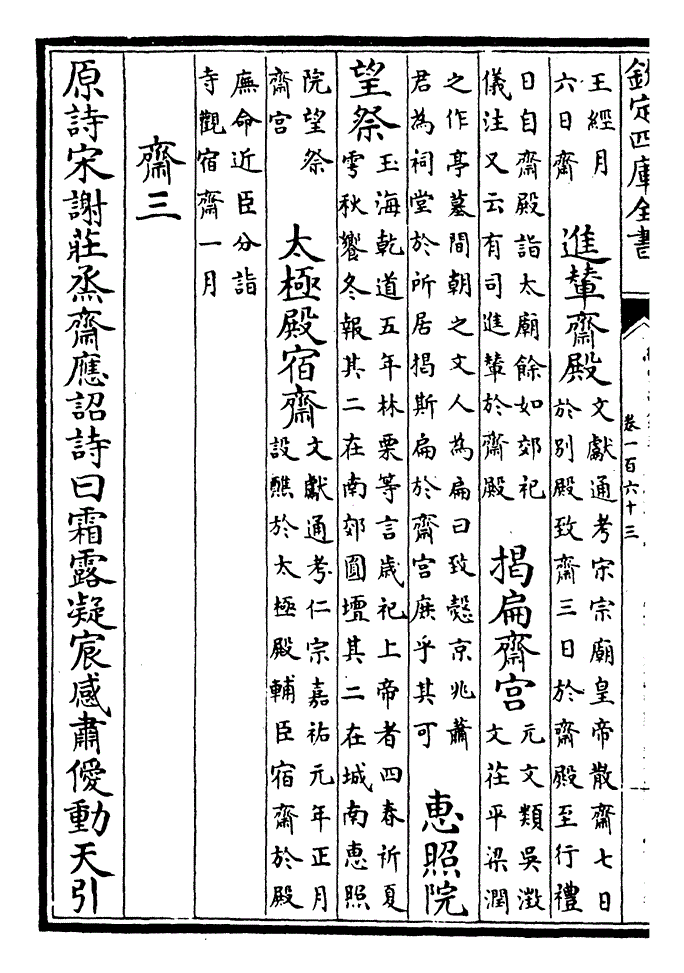 欽定四庫全書
卷一百六十三
王經月
六日齋
進輦齋殿
文獻通考宋宗廟皇帝散齋七日
於別殿致齋三日於齋殿至行禮
日自齋殿詣太廟餘如郊祀
儀注又云有司進輦於齋殿
揭扁齋宮
元文類吳澂
文茌平梁潤
之作亭墓間朝之文人為扁曰致慤京兆蕭
君為祠堂於所居揭斯扁於齋宮庶乎其可
惠照院
望祭
玉海乾道五年林栗等言歲祀上帝者四春祈夏
雩秋饗冬報其二在南郊圓壇其二在城南惠照
院望祭
齋宮
太極殿宿齋
文獻通考仁宗嘉祐元年正月
設醮於太極殿輔臣宿齋於殿
廡命近臣分詣
寺觀宿齋一月
齋三
原詩宋謝莊烝齋應詔詩曰霜露凝宸感肅僾動天引